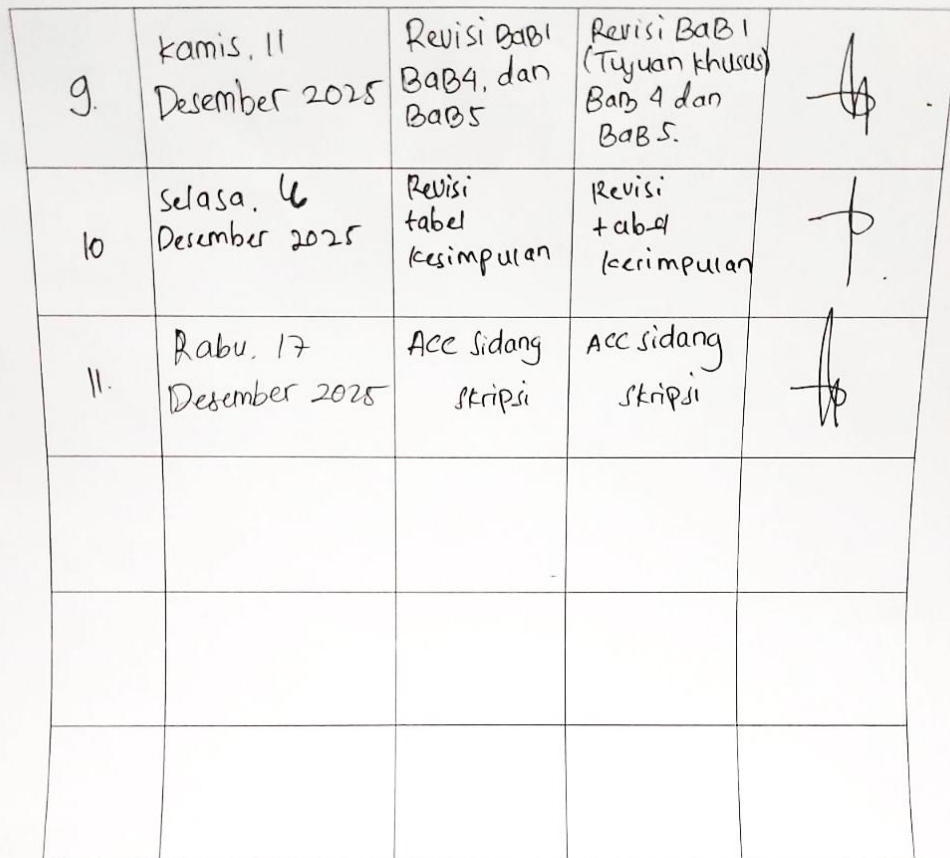 9.
Kamis, 11
Desember 2025
Revisi BaB1
BaB4, dan
BaB5
Revisi BaB1
(Tujuan khusus)
BaB 4 dan
BaB 5.
10
Selasa,
Desember 2025
Revisi
tabel
kesimpulan
Revisi
tabel
kerimpulan
11.
Rabu, 17
Desember 2025
Acc Sidang
Skripsi
Acc sidang
Skripsi